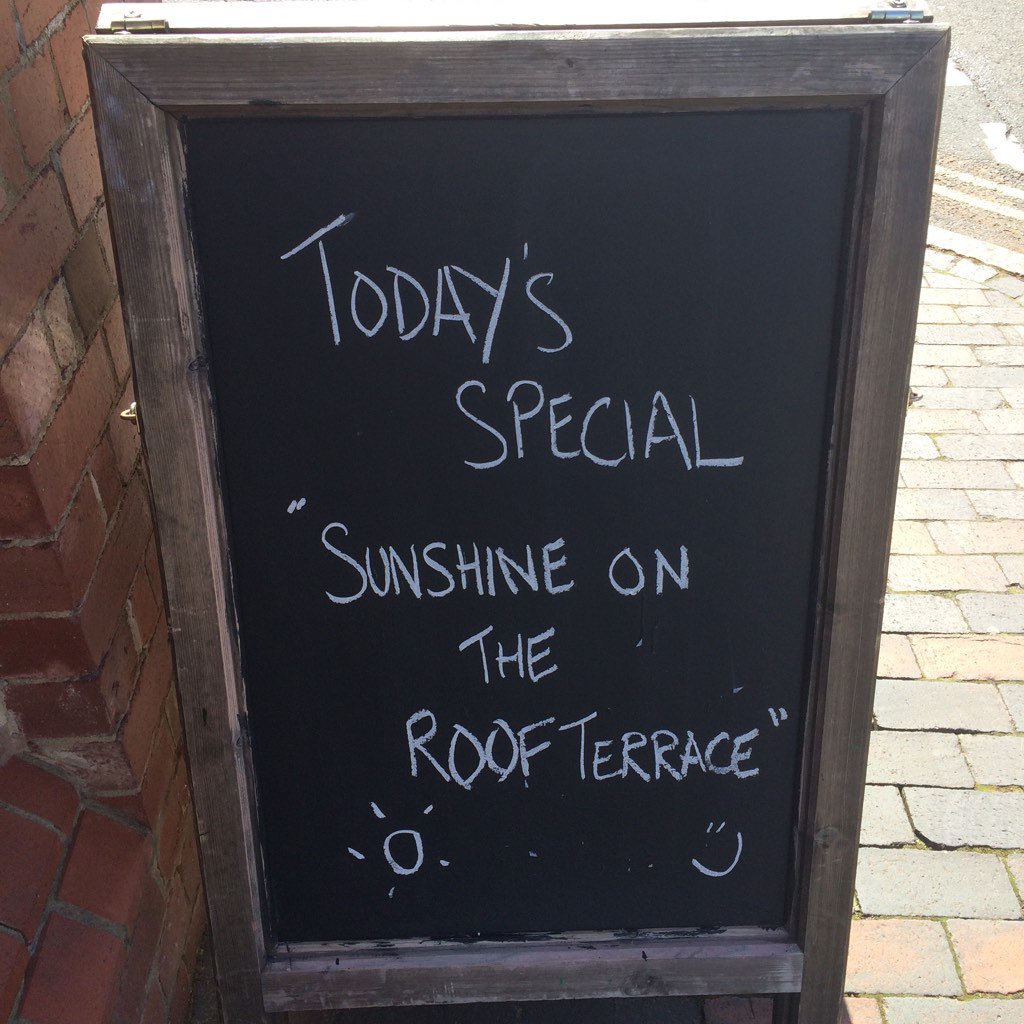 TODAY'S
SPECIAL
"SUNSHINE ON
THE
ROOF TERRACE"